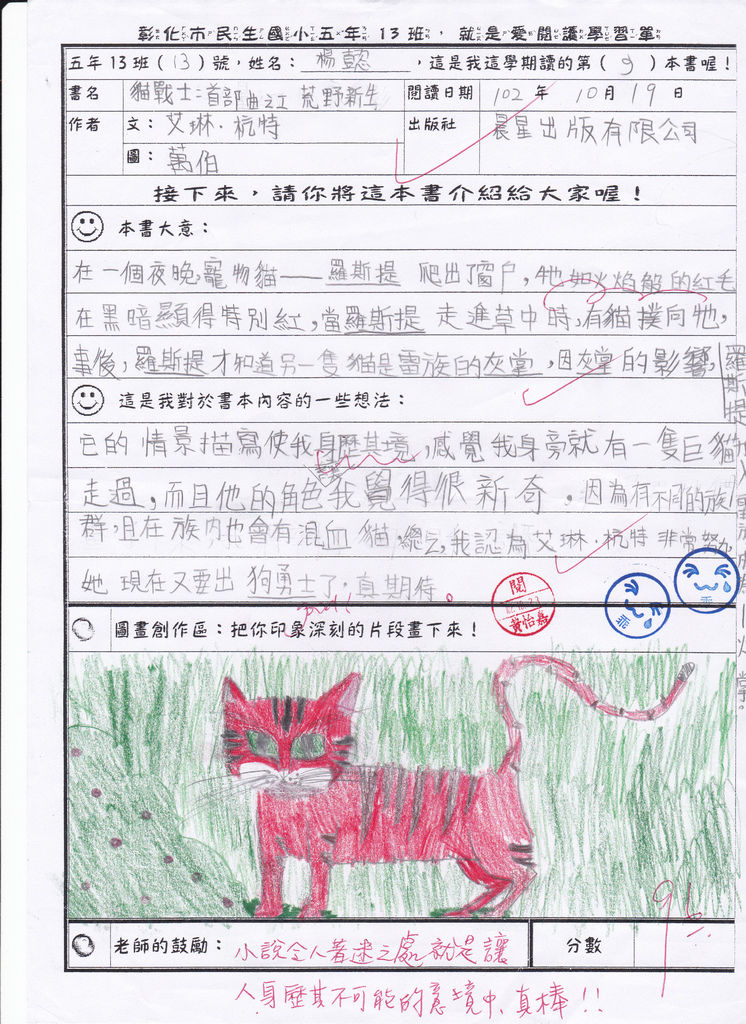 彰化市民生國小五年13班，就是愛閱讀學習單
五年13班（13）號，姓名：楊懿，這是我這學期讀的第（9）本書喔！
書名 貓戰士：首部曲之I 荒野新生 閱讀日期 102年10月19日
作者 文：艾琳．杭特 出版社 晨星出版有限公司
圖：萬伯
接下來，請你將這本書介紹給大家喔！
本書大意：
在一個夜晚，寵物貓──羅斯提 爬出了窗戶，牠如火焰般的紅毛
在黑暗顯得特別紅，當羅斯提 走進草中時，有貓撲向牠，
事後，羅斯提才知道另一隻貓是雷族的灰掌，因灰掌的影響，
羅斯提
這是我對於書本內容的一些想法：
它的 情景描寫使我身歷其境，感覺我身旁就有一隻巨貓
走過，而且他的角色我覺得很新奇，因為有不同的族
群，且在 族內也會有混血 貓，總之，我認為艾琳．杭特 非常努
她 現在又要出 狗勇士了，真期待。
閱
黃怡嘉
乖
乖
圖畫創作區：把你印象深刻的片段畫下來！
老師的鼓勵：小說令人著迷之處就是讓 分數
人身歷其不可能的意境中，真棒！！